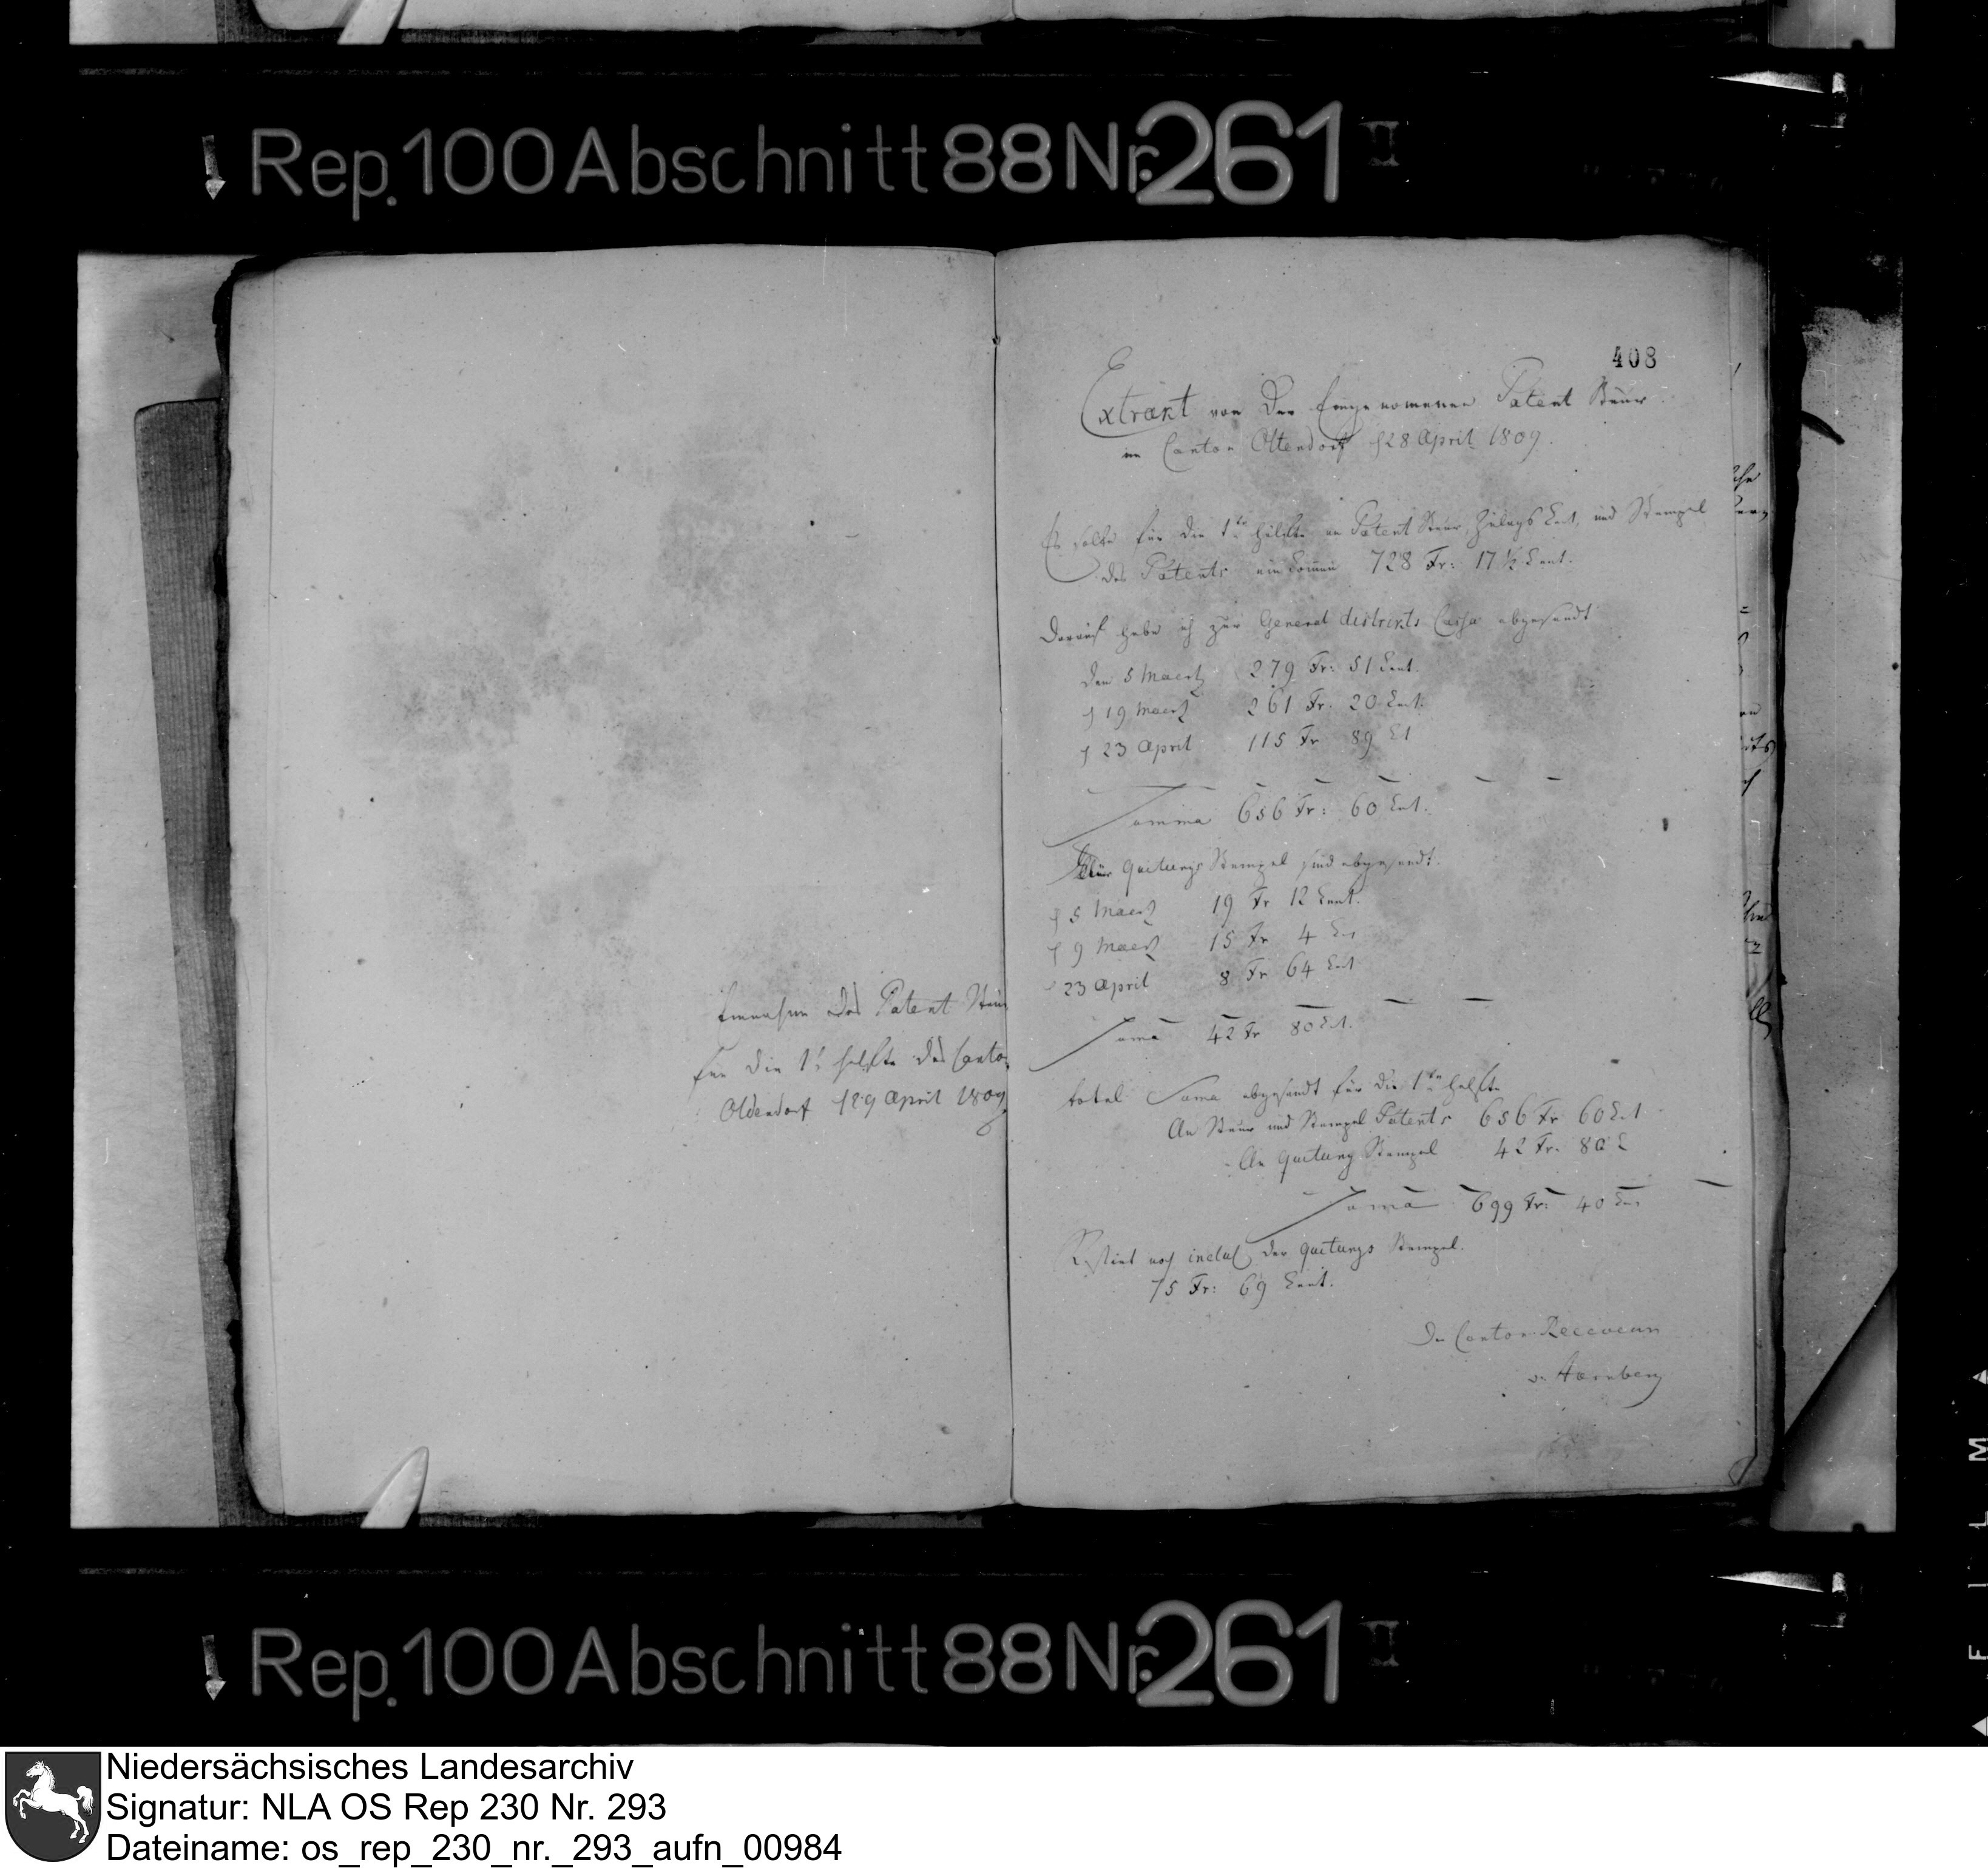 Rep. 100 Abschnitt 88 Nr. 261 II
Einnahme des Patent Steuer
für die 1t helfte des Canton
Oldendorf 29 April 1809
408
Extrakt von der Eingenommenen Patent Steuer
im Canton Oldendorf d 28 April 1809.
Es solte für die 1te helfte an Patent Steuer, Zulags Cent, und Stempel
des Patents einkommen 728 Fr: 17 ½ Cent.
Darauf habe ich zur General districts Cassa abgesandt
den 5 Maertz 279 Fr: 51 Cent.
d 19 Maertz 261 Fr. 20 Cent.
d 23 April 115 Fr 89 Ct
Somma 656 Fr: 60 Cent.
Für Quitungs Stempel sind abgesandt.
d 5 Maertz 19 Fr 12 Cent.
d 9 Maertz 15 Fr 4 Cen
d 23 April 8 Fr 64 Cent
Soma 42 Fr 80 Ct.
total Soma abgesandt für die 1te helfte
An Steuer und Stempel Patents 656 Fr 60 Ct
An Quitung Stempel 42 Fr. 80 C
Soma 699 Fr: 40 Cen
Restirt noch inclus der Quitungs Stempel.
75 Fr: 69 Cent.
Der Canton Receveur
v.
Rep. 100 Abschnitt 88 Nr. 261 II
FILM
Niedersächsisches Landesarchiv
Signatur: NLA OS Rep 230 Nr. 293
Dateiname: os_rep_230_nr._293_aufn_00984